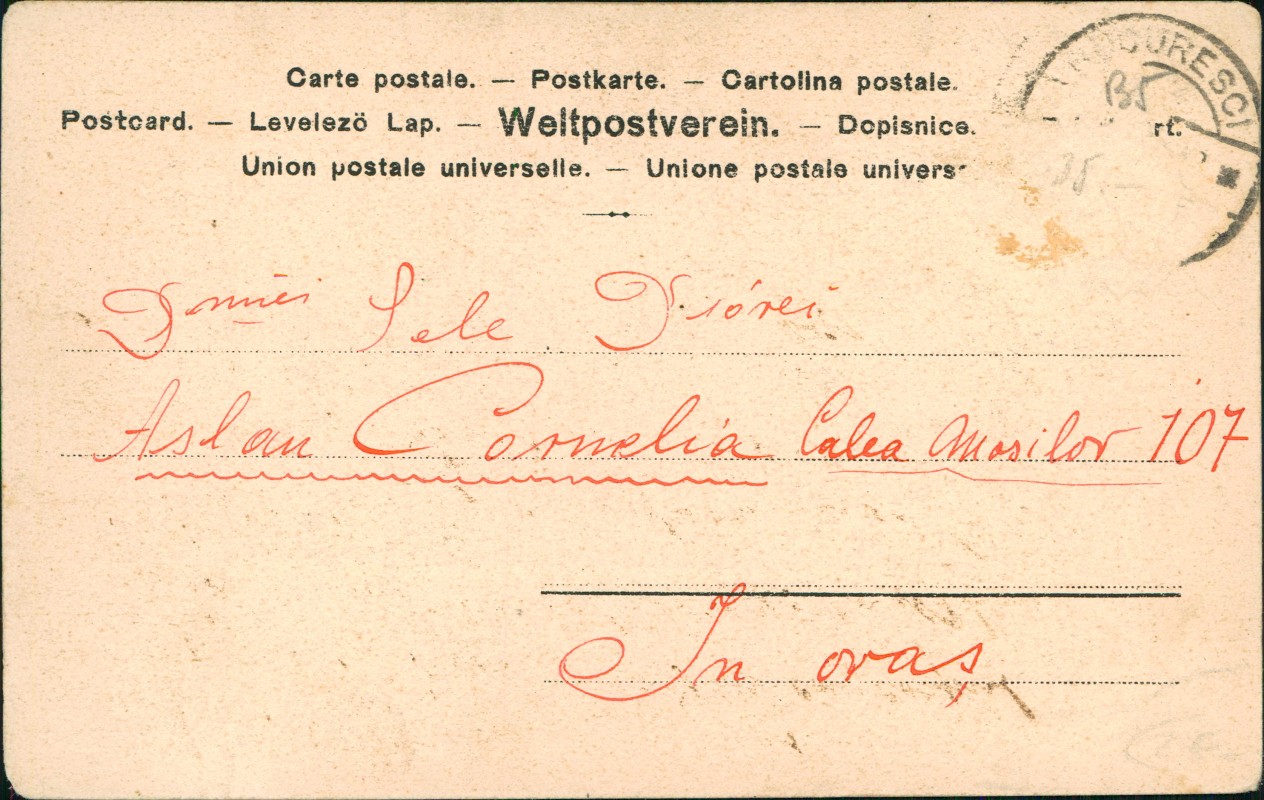 Carte postale. — Postkarte. — Cartolina postale.
Postcard. — Levelező Lap. — Weltpostverein. — Dopisnice. rt.
Union postale universelle. — Unione postale univers
BUCURESCI
B5
35.—
Sele
Aslan Cornelia Calea Mosilor 107
In oraș